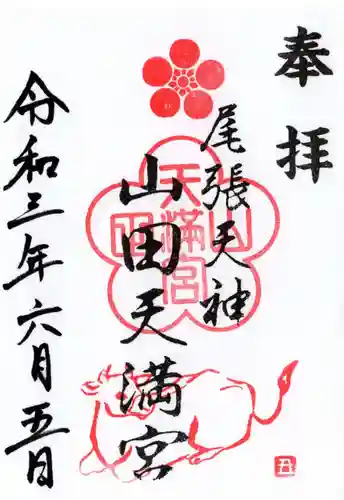 奉拝
尾張天神
山田天満宮
天満宮
山田
令和三年六月五日
丑